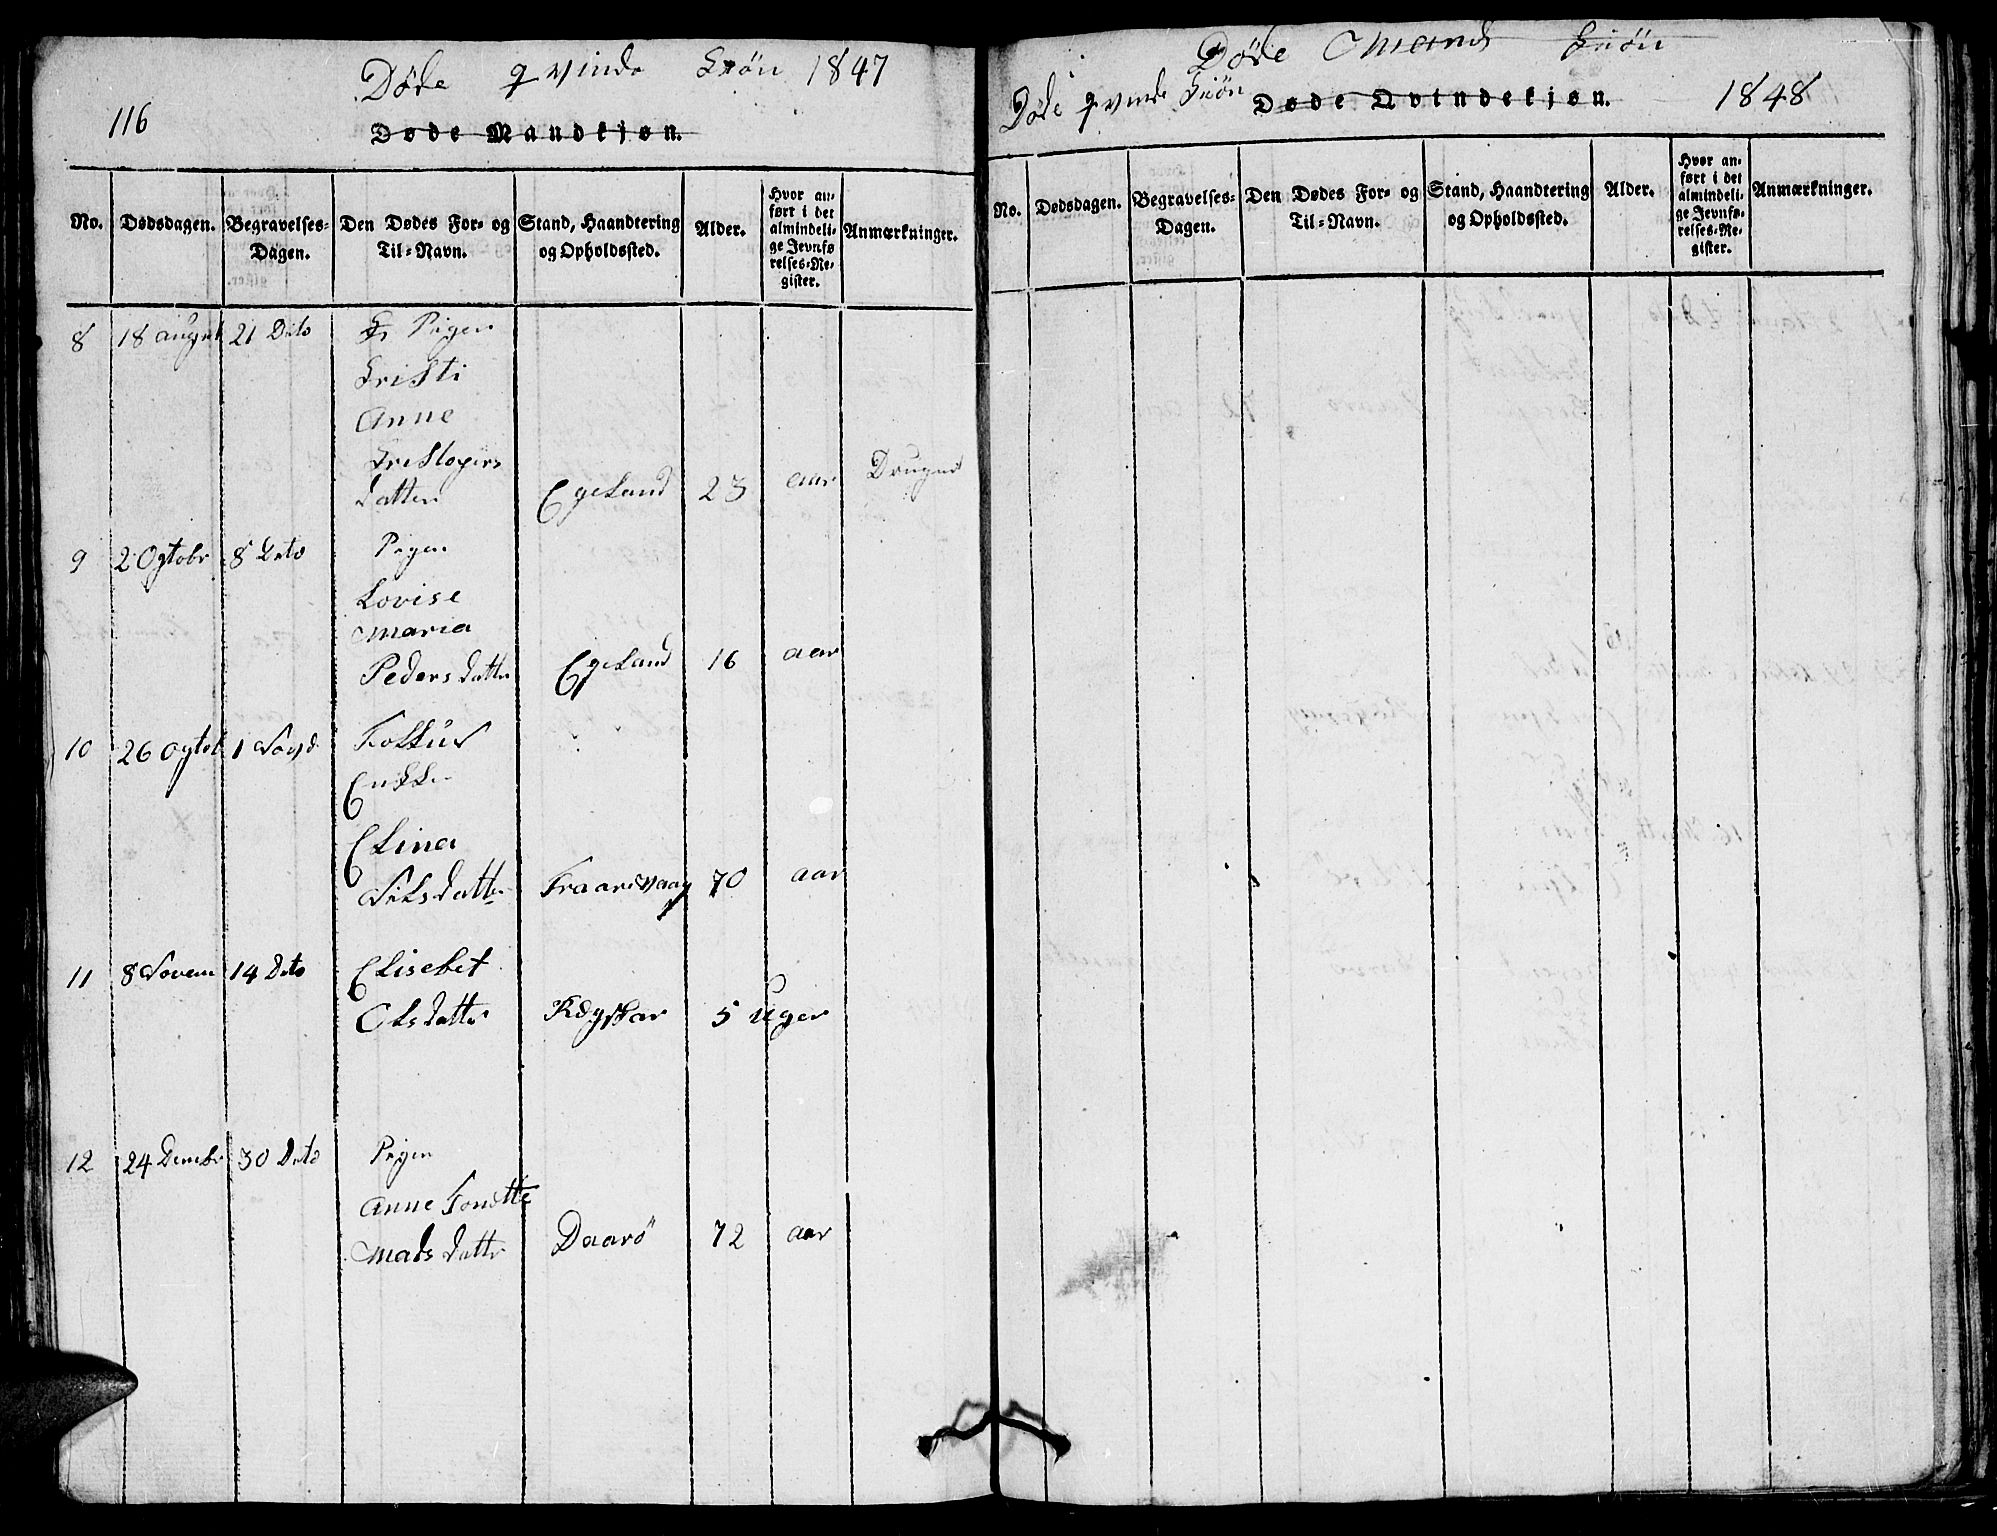 116
Døde qvinde Kiøn 1847
Døde Mandkjøn.
No. Dødsdagen. Begravelses-Dagen. Den Dødes For- og Til-Navn. Stand, Haandtering og Opholdssted. Alder. Hvor anført i det almindelige Jevnførelses-Register. Anmærkninger.
8 18 august 21 Dito Pigen
Kristi
Anne
Kristopers
datter Egeland 23 aar Drugnet
9 2 Ogtobr 8 Dito Pigen
Lovise
Maria
Peders datter Egeland 16 aar
10 26 Ogtob 1
Enkke
Elina
Nilsdatter 70 aar
11 8 Novem 14 Dito Elisebet
Olsdatter 5 Uger
12 24 Desebr 30 Dito Pigen
Anne Tonette
Mads datter Daarö 72 aar
Døde Mands Kiön
Døde qvinde Kiøn
Døde Qvindekjøn.
1848
No. Dødsdagen. Begravelses-Dagen. Den Dødes For- og Til-Navn. Stand, Haandtering og Opholdssted. Alder. Hvor anført i det almindelige Jevnførelses-Register. Anmærkninger.